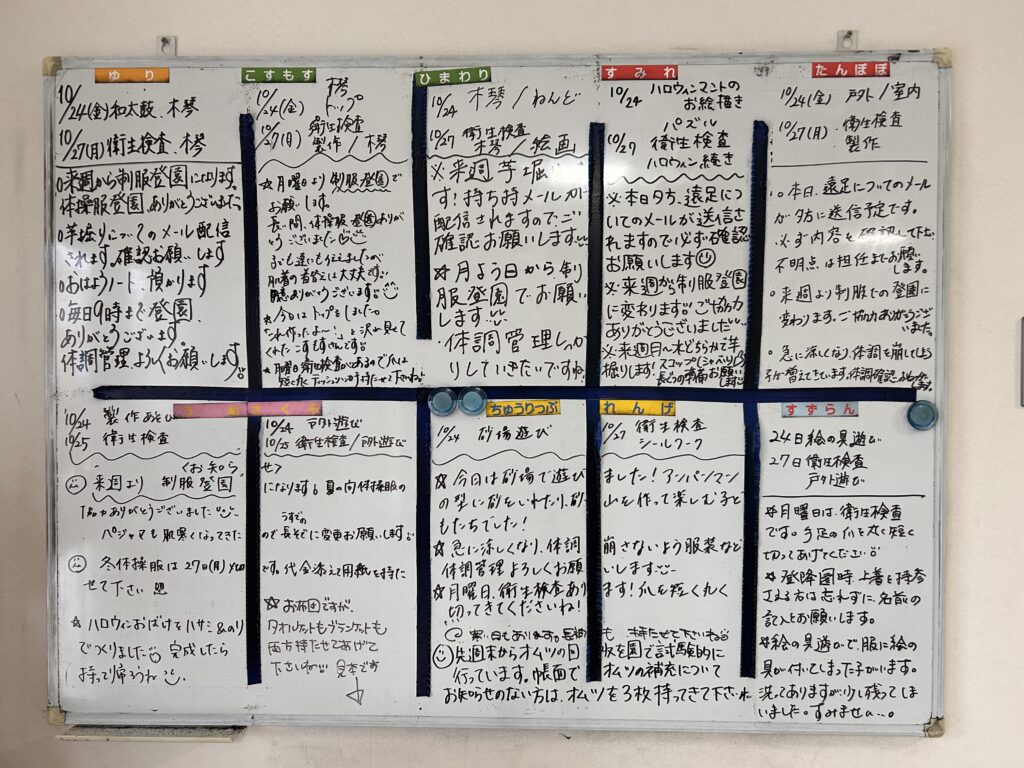 ゆり
10/24(金)和太鼓、木琴
10/27(月)衛生検査、木琴
○来週から制服登園になります。
体操服登園、ありがとうございました
○芋掘りについてのメール配信
されます。確認お願いします
○おはようノート、預かります
○毎日9時まで登園、
ありがとうございます。
体調管理よろしくお願いします。
こすもす
10/24(金) 木琴
トップ
10/27(月) 衛生検査
製作/木琴
☆月曜日より制服登園で
お願いします。
長い間、体操服登園ありが
とうございました
ありがとうございます
☆月曜日衛生検査があるので爪は
ひまわり
10/24 木琴/ねんど
10/27 衛生検査
木琴/絵画
※来週芋堀
す!持ち持メールが
配信されますのでご
確認お願いします
☆月よう日から制
服登園でお願い
します
・体調管理しっか
りしていきたいですね
すみれ
10/24 ハロウィンマントの
お絵描き
パズル
10/27 衛生検査
ハロウィン続き
※本日夕方、遠足につ
いてのメールが送信さ
れますので必ず確認
お願いします
※来週から制服登園
に変わります。ご協力
ありがとうございました
※来週月〜木どちらかで芋
掘りします!スコップ
長ぐつの準備お願い
します
たんぽぽ
10/24(金) 戸外/室内
10/27(月) 衛生検査
製作
○本日、遠足についてのメール
が夕方に送信予定です。
※必ず内容を確認して下さい
不明点は担任までお願い
します。
○来週より制服での登園に
変わります。ご協力ありがとうござい
ました。
○急に涼しくなり、体調を崩してしまう
子が増えてきています。体調確認お願い
します。
10/24 製作あそび
10/25 衛生検査
10/24 戸外遊び
10/25 衛生検査/戸外遊び
<お知らせ>
来週より 制服登園になります。夏の向体操服の
ご協力ありがとうございました
パジャマも肌寒くなってきたので長そでに変更お願いします
冬体操服は27日(月)〆切です。代金添えて用紙を持た
せて下さい
☆ハロウィンおばけをハサミ&のり
でつくりました 完成したら
持って帰ろうね
☆お布団ですが、
タオルケットもブランケットも
両方持たせてあげて
下さいね 見本です
ちゅうりっぷ
10/24 砂場遊び
れんげ
10/27 衛生検査
シールワーク
☆今日は砂場で遊びました!アンパンマン
の型に砂をいれたり、砂山を作って楽しむ子ど
もたちでした!
☆急に涼しくなり、体調崩さないよう服装など
体調管理よろしくお願いします
☆月曜日、衛生検査あります!爪を短く丸く
切ってきてくださいね!
も 持たせて下さいね
先週末からオムツの回収を園で試験的に
行っています。帳面でオムツの補充について
お知らせのない方は、オムツを3枚持ってきて下さいね
すずらん
24日絵の具遊び
27日衛生検査
戸外遊び
☆月曜日は、衛生検査
です。手足の爪を丸く短く
切ってあげてください
☆登降園時、上着を持参
される方は忘れずに名前の
記入とお願いします。
☆絵の具遊びで、服に絵の
具が付いてしまった子がいます。
洗ってありますが、少し残ってしま
いました。すみません。